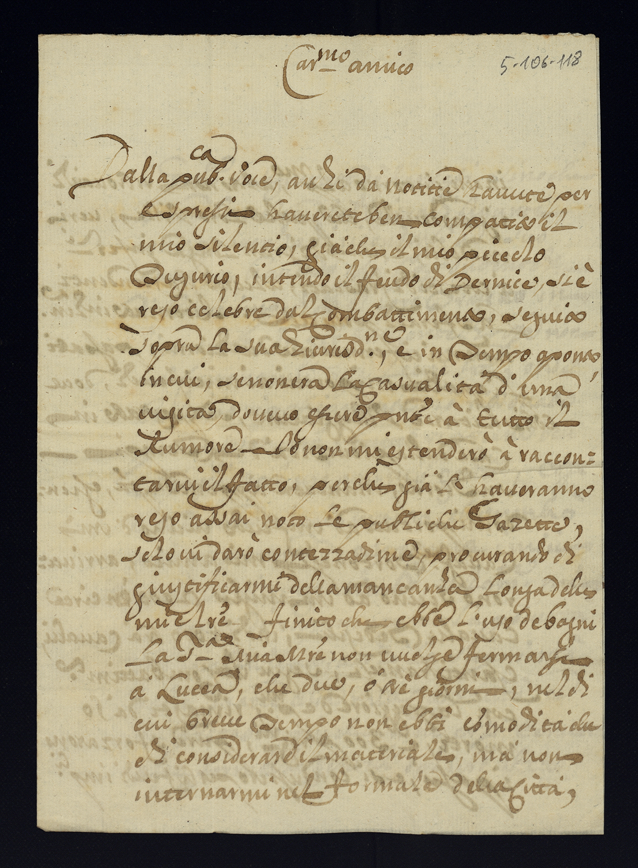 Car.mo amico
5-106-118
Dalla pub.ca voce, anzi da notitie havute per
espresso haverete ben compatito il
mio silentio, già che il mio picciolo
Tugurio, intendo il feudo di Dernice, si è
reso celebre dal Combattimento, seguito
sopra la sua giurisd.ne, e in Tempo aponto
in cui, se non era la Casualità d'una
visita, dovevo essere pnte à tutto il
Rumore Io non mi estenderò à raccon=
tarvi il fatto, perche già le haveranno
reso assai noto le publiche Gazette,
solo vi darò contezza di me, procurando di
giustificarmi della mancanza longa delle
mie lre finito che ebbe l'uso de bagni
la Sra mia Mre non volse fermarsi
a Lucca, che due, ò tre giorni, nel di
cui breve Tempo non ebbi comodità che
di considerare il materiale, ma non
internarmi nel formale della Città,